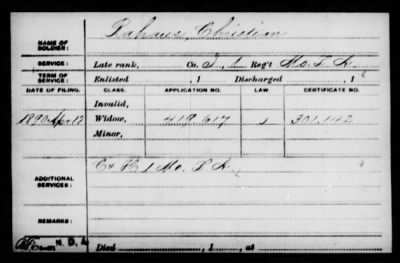 NAME OF SOLDIER: Christian
SERVICE: Late rank, Co. Reg't Mo. I.
TERM OF SERVICE: Enlisted , 1 Discharged , 1
DATE OF FILING. CLASS. APPLICATION NO. LAW. CERTIFICATE NO.
Invalid,
1890 Apr 12 Widow, 419.617 301.142
Minor,
ADDITIONAL SERVICES: 1 Mo.
REMARKS:
Died , 1 , at